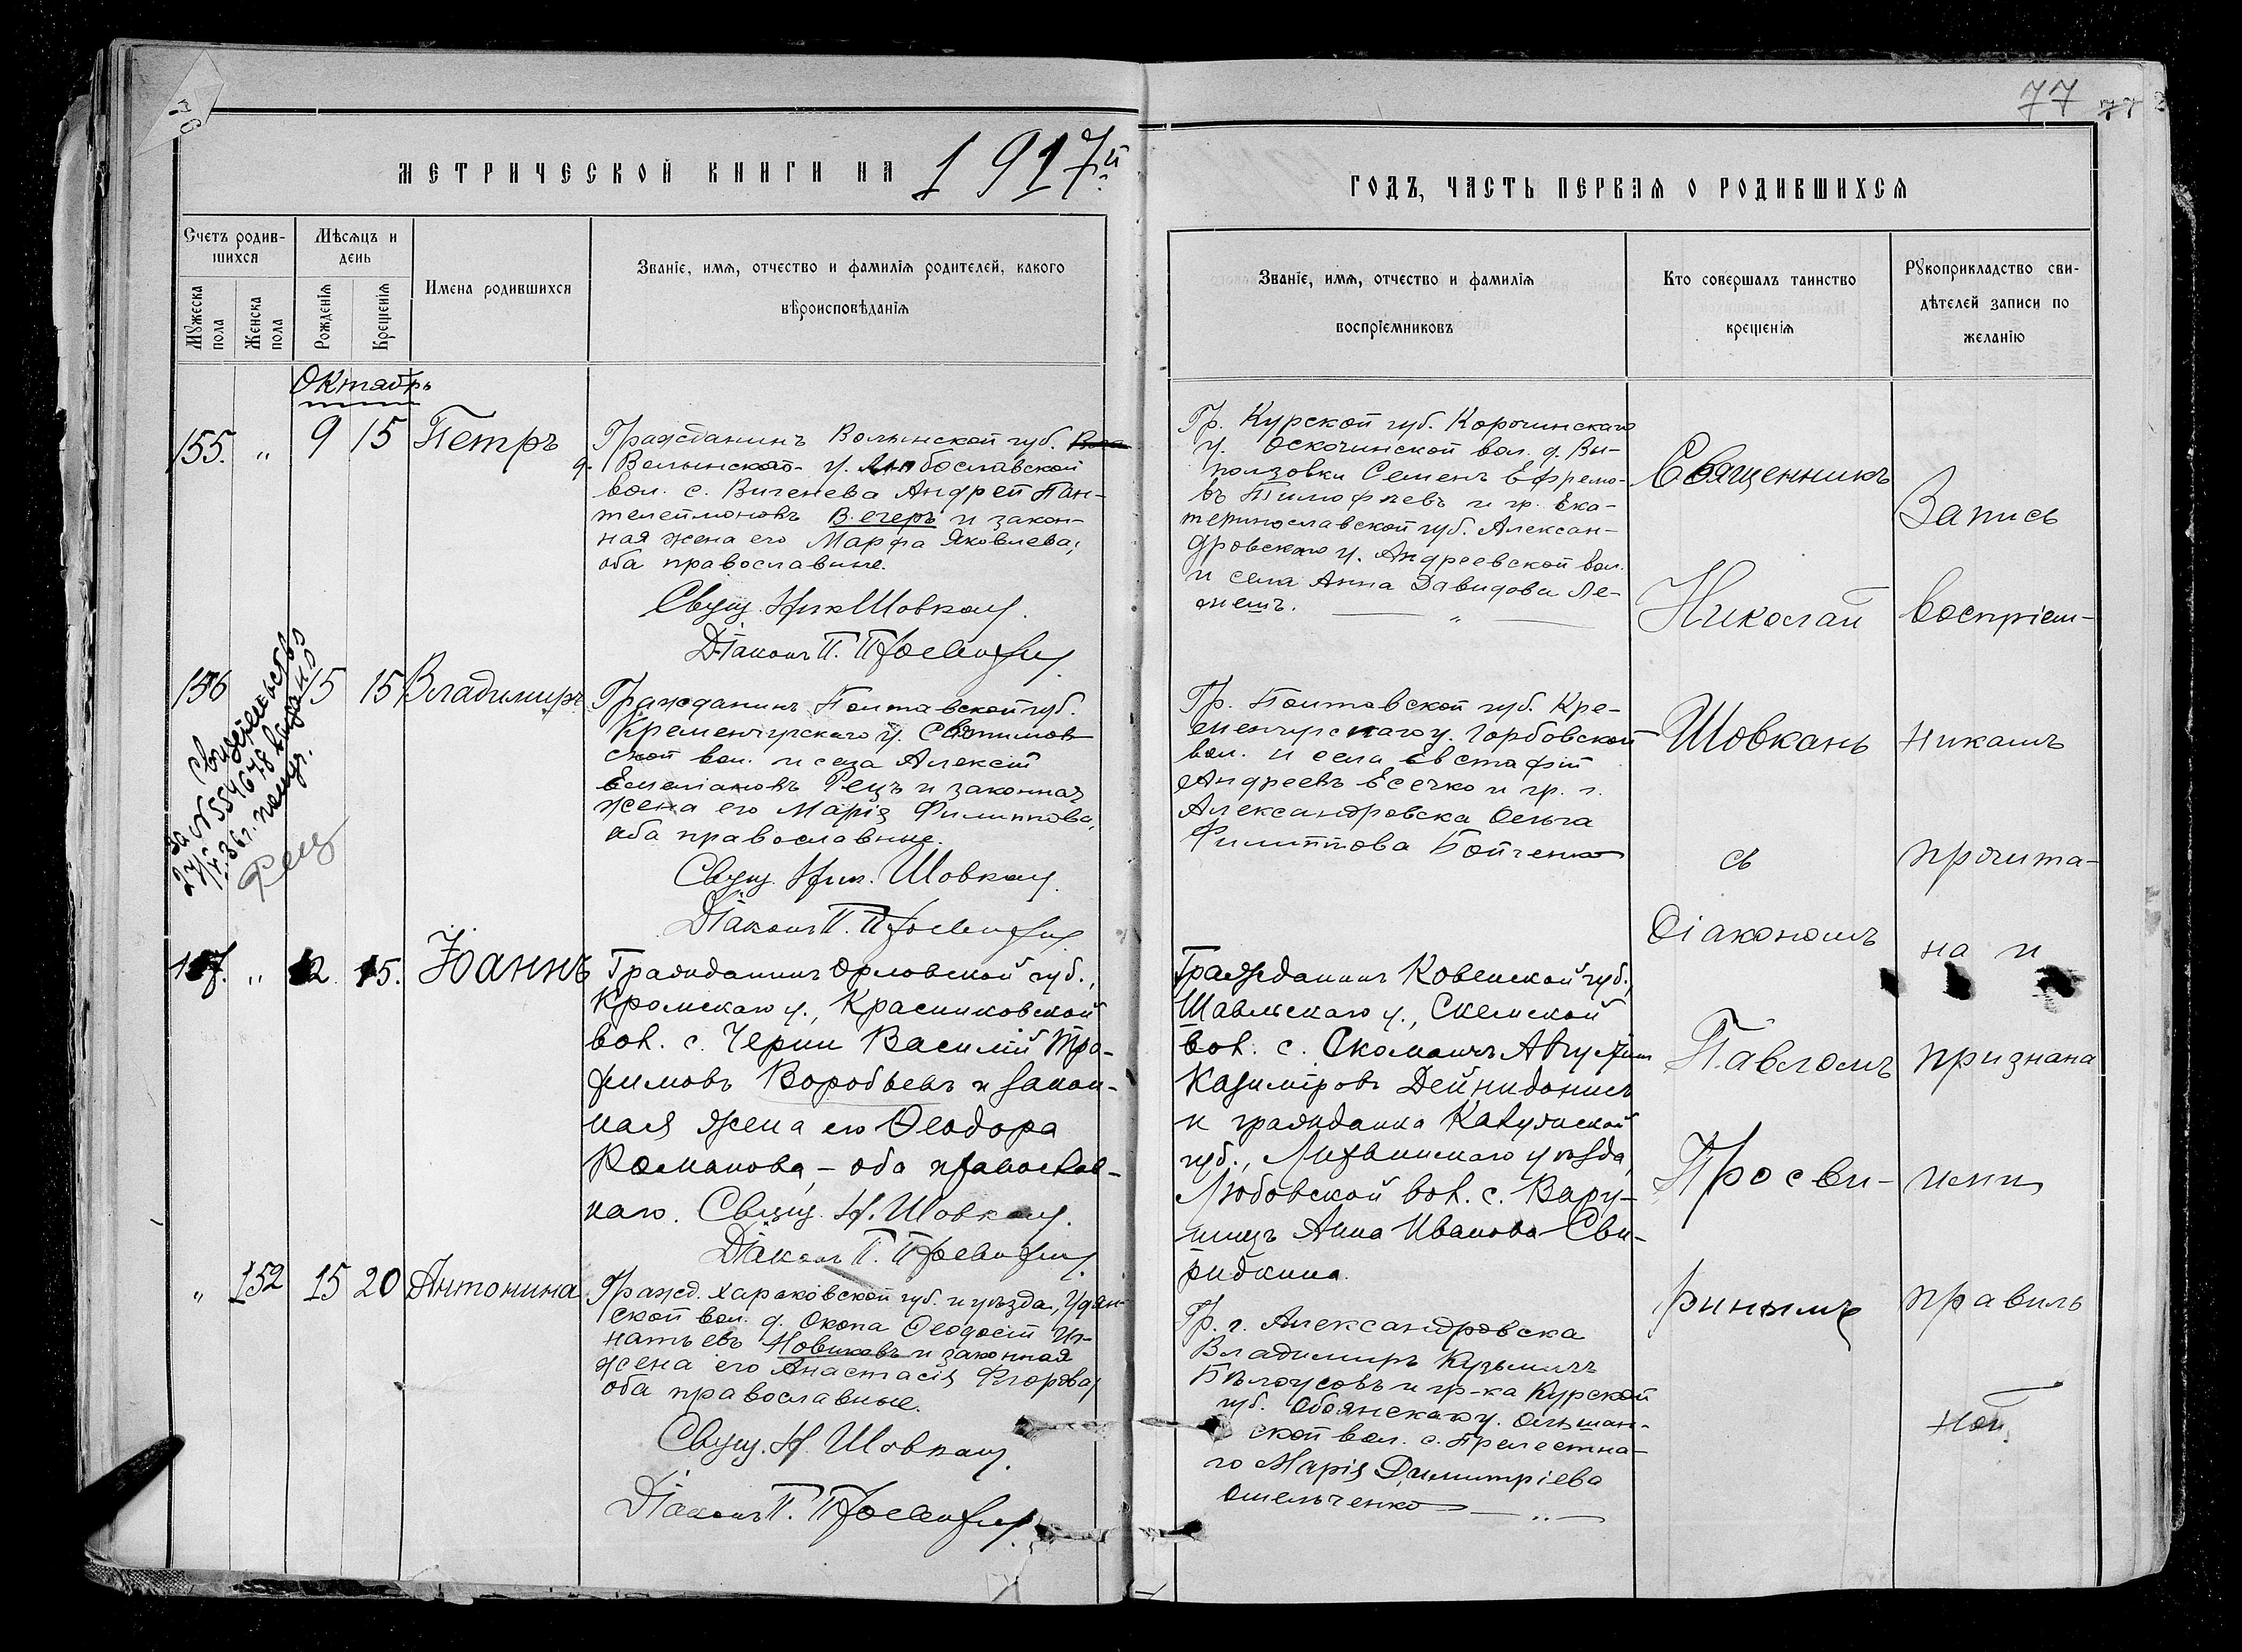 77
МЕТРИЧЕСКОЙ КНИГИ НА 1917й
ГОДЪ, ЧАСТЬ ПЕРВАЯ О РОДИВШИХСЯ
Счетъ родив-
шихся
Мужеска пола
Женска пола
Мѣсяцъ и
день
Рожденія
Крещенія
Имена родившихся
Званіе, имя, отчество и фамилія родителей, какого
вѣроисповѣданія
Званіе, имя, отчество и фамилія
воспріемниковъ
Кто совершалъ таинство
крещенія
Рукоприкладство сви-
дѣтелей записи по
желанію
Октябрь
155. „ 9 15 Петръ
Гражданинъ Волынской губ.
Волынскаго у.
вол. с. Андрей Пан-
телеимоновъ Вечеръ и закон-
ная жена его Марфа Яковлева,
оба православные.
Свящ. Ник. Шовкань.
Діаконъ П. Просвиринъ.
Гр. Курской губ. Корочинскаго
у. вол. д. Вы-
ползовки Семенъ Ефремо-
въ Тимофѣевъ и гр. Ека-
теринославской губ. Алексан-
дровскаго у. Андреевской вол.
и села Анна Давидова Ле-
мешъ. „
156 5 15 Владимиръ
Гражданинъ Полтавской губ.
Кременчугскаго у.
ской вол. и села Алексій
Емеліановъ Рецъ и законная
жена его Марія Филиппова,
оба православные.
Свящ. Ник. Шовкань.
Діаконъ П. Просвиринъ.
Свидетельство
за № 554678 выдано
36 г.
Рец
Гр. Полтавской губ. Кре-
менчугскаго у. Горбовской
вол. и села Евстафій
Андреевъ Есечко и гр. г.
Александровска Ольга
Филиппова Бойченко
157. „ 12 15. Іоаннъ
Гражданинъ Орловской губ.,
Кромскаго у., Красниковской
вол. с. Черни Василій Тро-
фимовъ Воробьевъ и закон-
ная жена его Ѳеодора
Романова, – оба православ-
наго. Свящ. Н. Шовкань.
Діаконъ П. Просвиринъ.
Гражданинъ Ковенской губ.,
Шавльскаго у., Скемской
вол. с. Августинъ
Казиміровъ
и гражданка Калужской
губ., Лихвинскаго уѣзда,
Любовской вол. с.
Анна Иванова Сви-
ридкина.
„ 152 15 20 Антонина
Гражд. Харьковской губ. и уѣзда, Удян-
ской вол. д. Окопа Ѳеодосій Иг-
натьевъ Новиковъ и законная
жена его Анастасія Ѳгорова,
оба православные.
Свящ. Н. Шовкань.
Діаконъ П. Просвиринъ.
Гр. г. Александровска
Владимиръ Кузьмичъ
Бѣлоусовъ и гр-ка Курской
губ. Обоянскаго у. Ольшан-
ской вол. с. Прелестна-
го Марія Димитріева
Омельченко „
Священникъ
Николай
Шовкань
съ
діакономъ
Павломъ
Просви-
ринымъ
Запись
воспріем-
никамъ
прочита-
на и
признана
ими
правиль
ной.